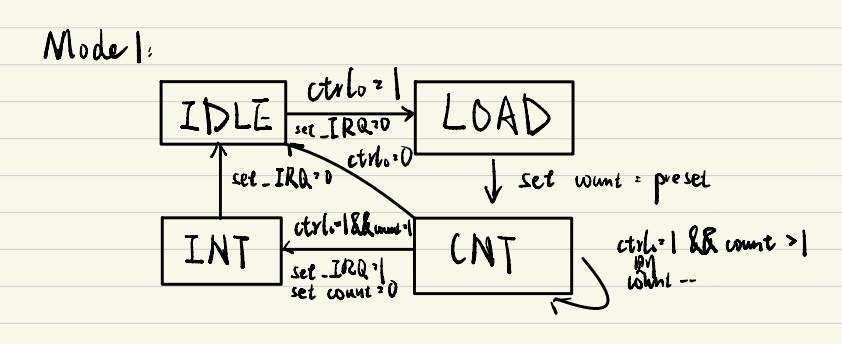 Mode 1:
IDLE
ctrl₀=1
set_IRQ=0
LOAD
ctrl₀=0
set_IRQ=0
set count = preset
INT
ctrl₀=1 && count=1
set_IRQ=1
set count=0
CNT
ctrl₀=1 && count >1
count --